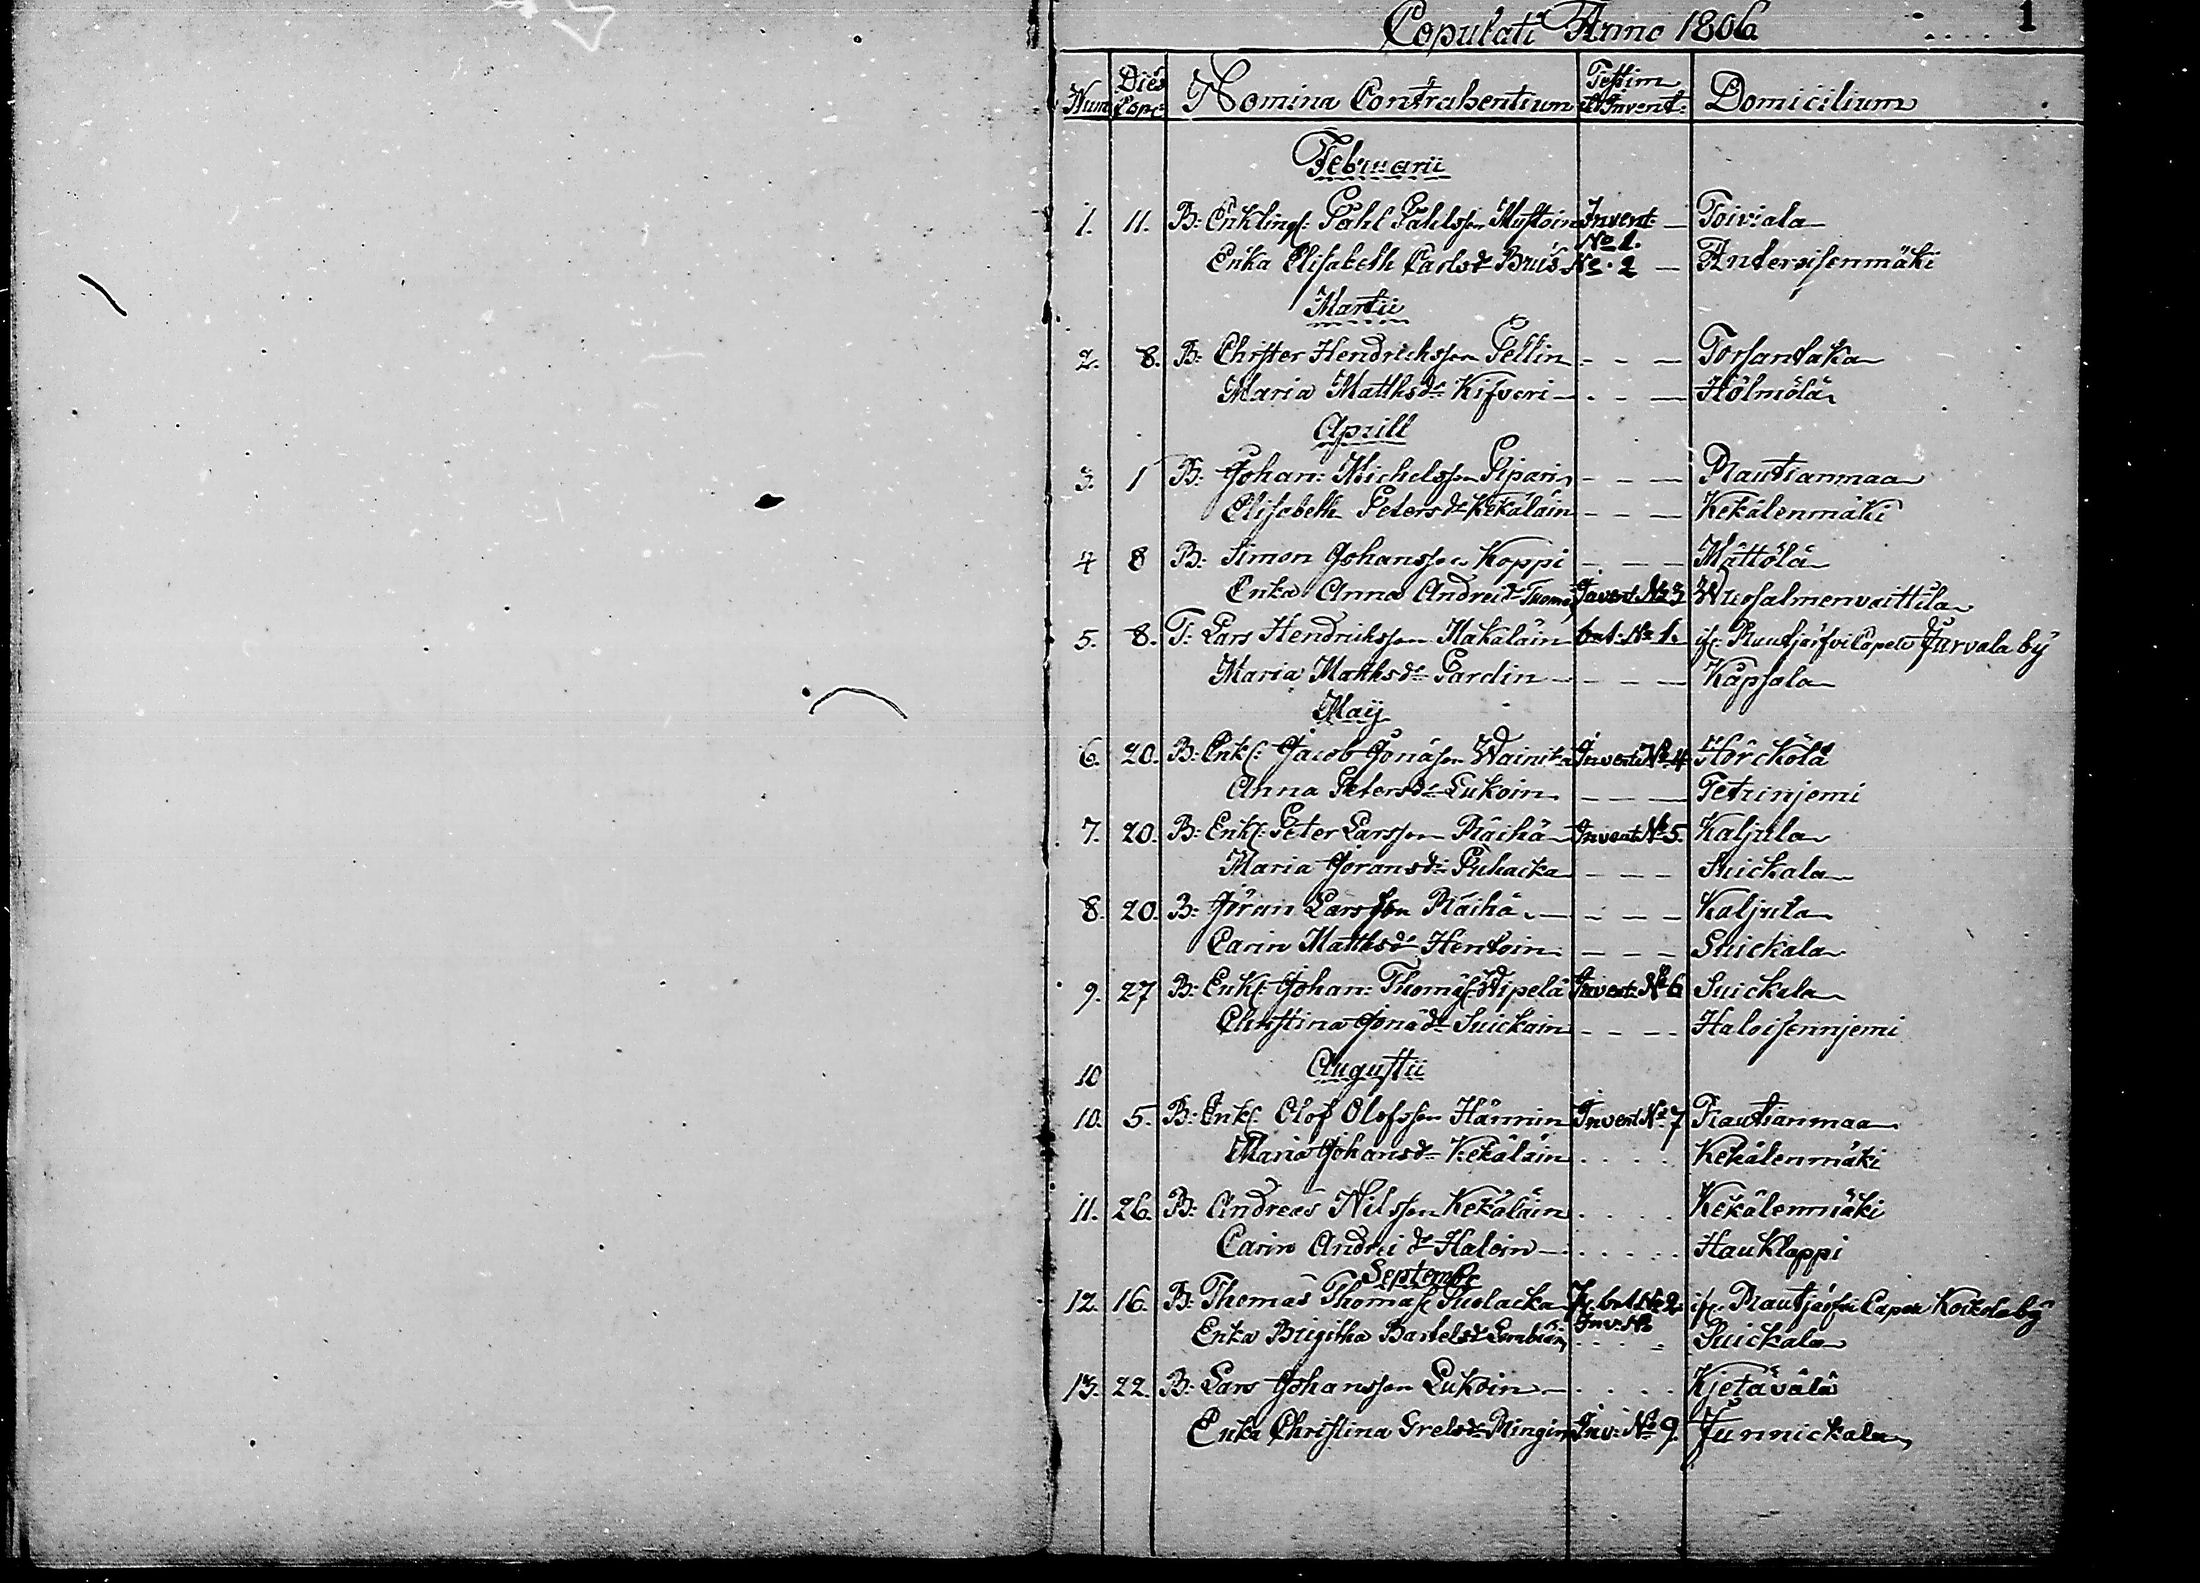 Copulati Anno 1806 1
Num Dies Cop: Nomina Contrahentium Testim et Invent: Domicilium
Februarii
1. 11. B: Enkling: Påhl Påhlsson Invent: No 1. — Toiviala
Enka Elisabeth Carlsdr No. 2 — Anteroisenmäki
Martii
2. 8. B: Christer Hendricksson Pellin - - — Torsantaka
Maria Matthsdr Kifveri - - — Hölmölä
Aprill
3. 1 B: Johan: Michelsson Sipari - - — Rautianmaa
Elisabeth Petersdr Kekäläin - - — Kekälenmäki
4 8 B: Simon Johansson Koppi - - — Mättölä
Enka Anna Andreidr Invent. No 3
5. 8. T: Lars Hendricksson Hakuläin bet: No 1. ifr: Rautjärfvi Capell Purvala by
Maria Matthsdr Pardin - - — Käpsala
Maij
6. 20. B: Enkl: Jacob Jonasson Wainika Invent No 4 Hörckölä
Anna Petersdr Lukoin - - — Tetrinjemi
7. 20. B: Enkl: Peter Larsson Räihä Invent No 5. Kaljula
Maria Göransdr Puhacka - - - Suickala
8. 20. B: Göran Larsson Räihä - - - Kaljula
Carin Matthsdr Hentoin - - - Suickala
9. 27 B: Enkl: Johan: Thomass: Wipelä Invent: No 6 Suickala
Christina Jonædr Suickain - - - Haloisennjemi
10 Augustii
10. 5. B: Enkl: Olof Olofsson Hännin Invent No 7 Rautianmaa
Maria Johansdr Kekäläin . . . . Kekälenmäki
11. 26. B: Andreas Nilsson Kekäläin . . . . Kekälenmäki
Carin Andreidr Haloin . . . . Haukloppi
Septembr
12. 16. B: Thomas Thomass: Suolacka bet No 2. ifr: Rautjärfvi Capell Koickola by
Enka Brigitha Bartelsdr Inv: No . . . . Suickala
13. 22. B: Lars Johansson Lukoin . . . . Kjetävälä
Enka Christina Grelsdr Ringin Inv: No 9. Junnickala